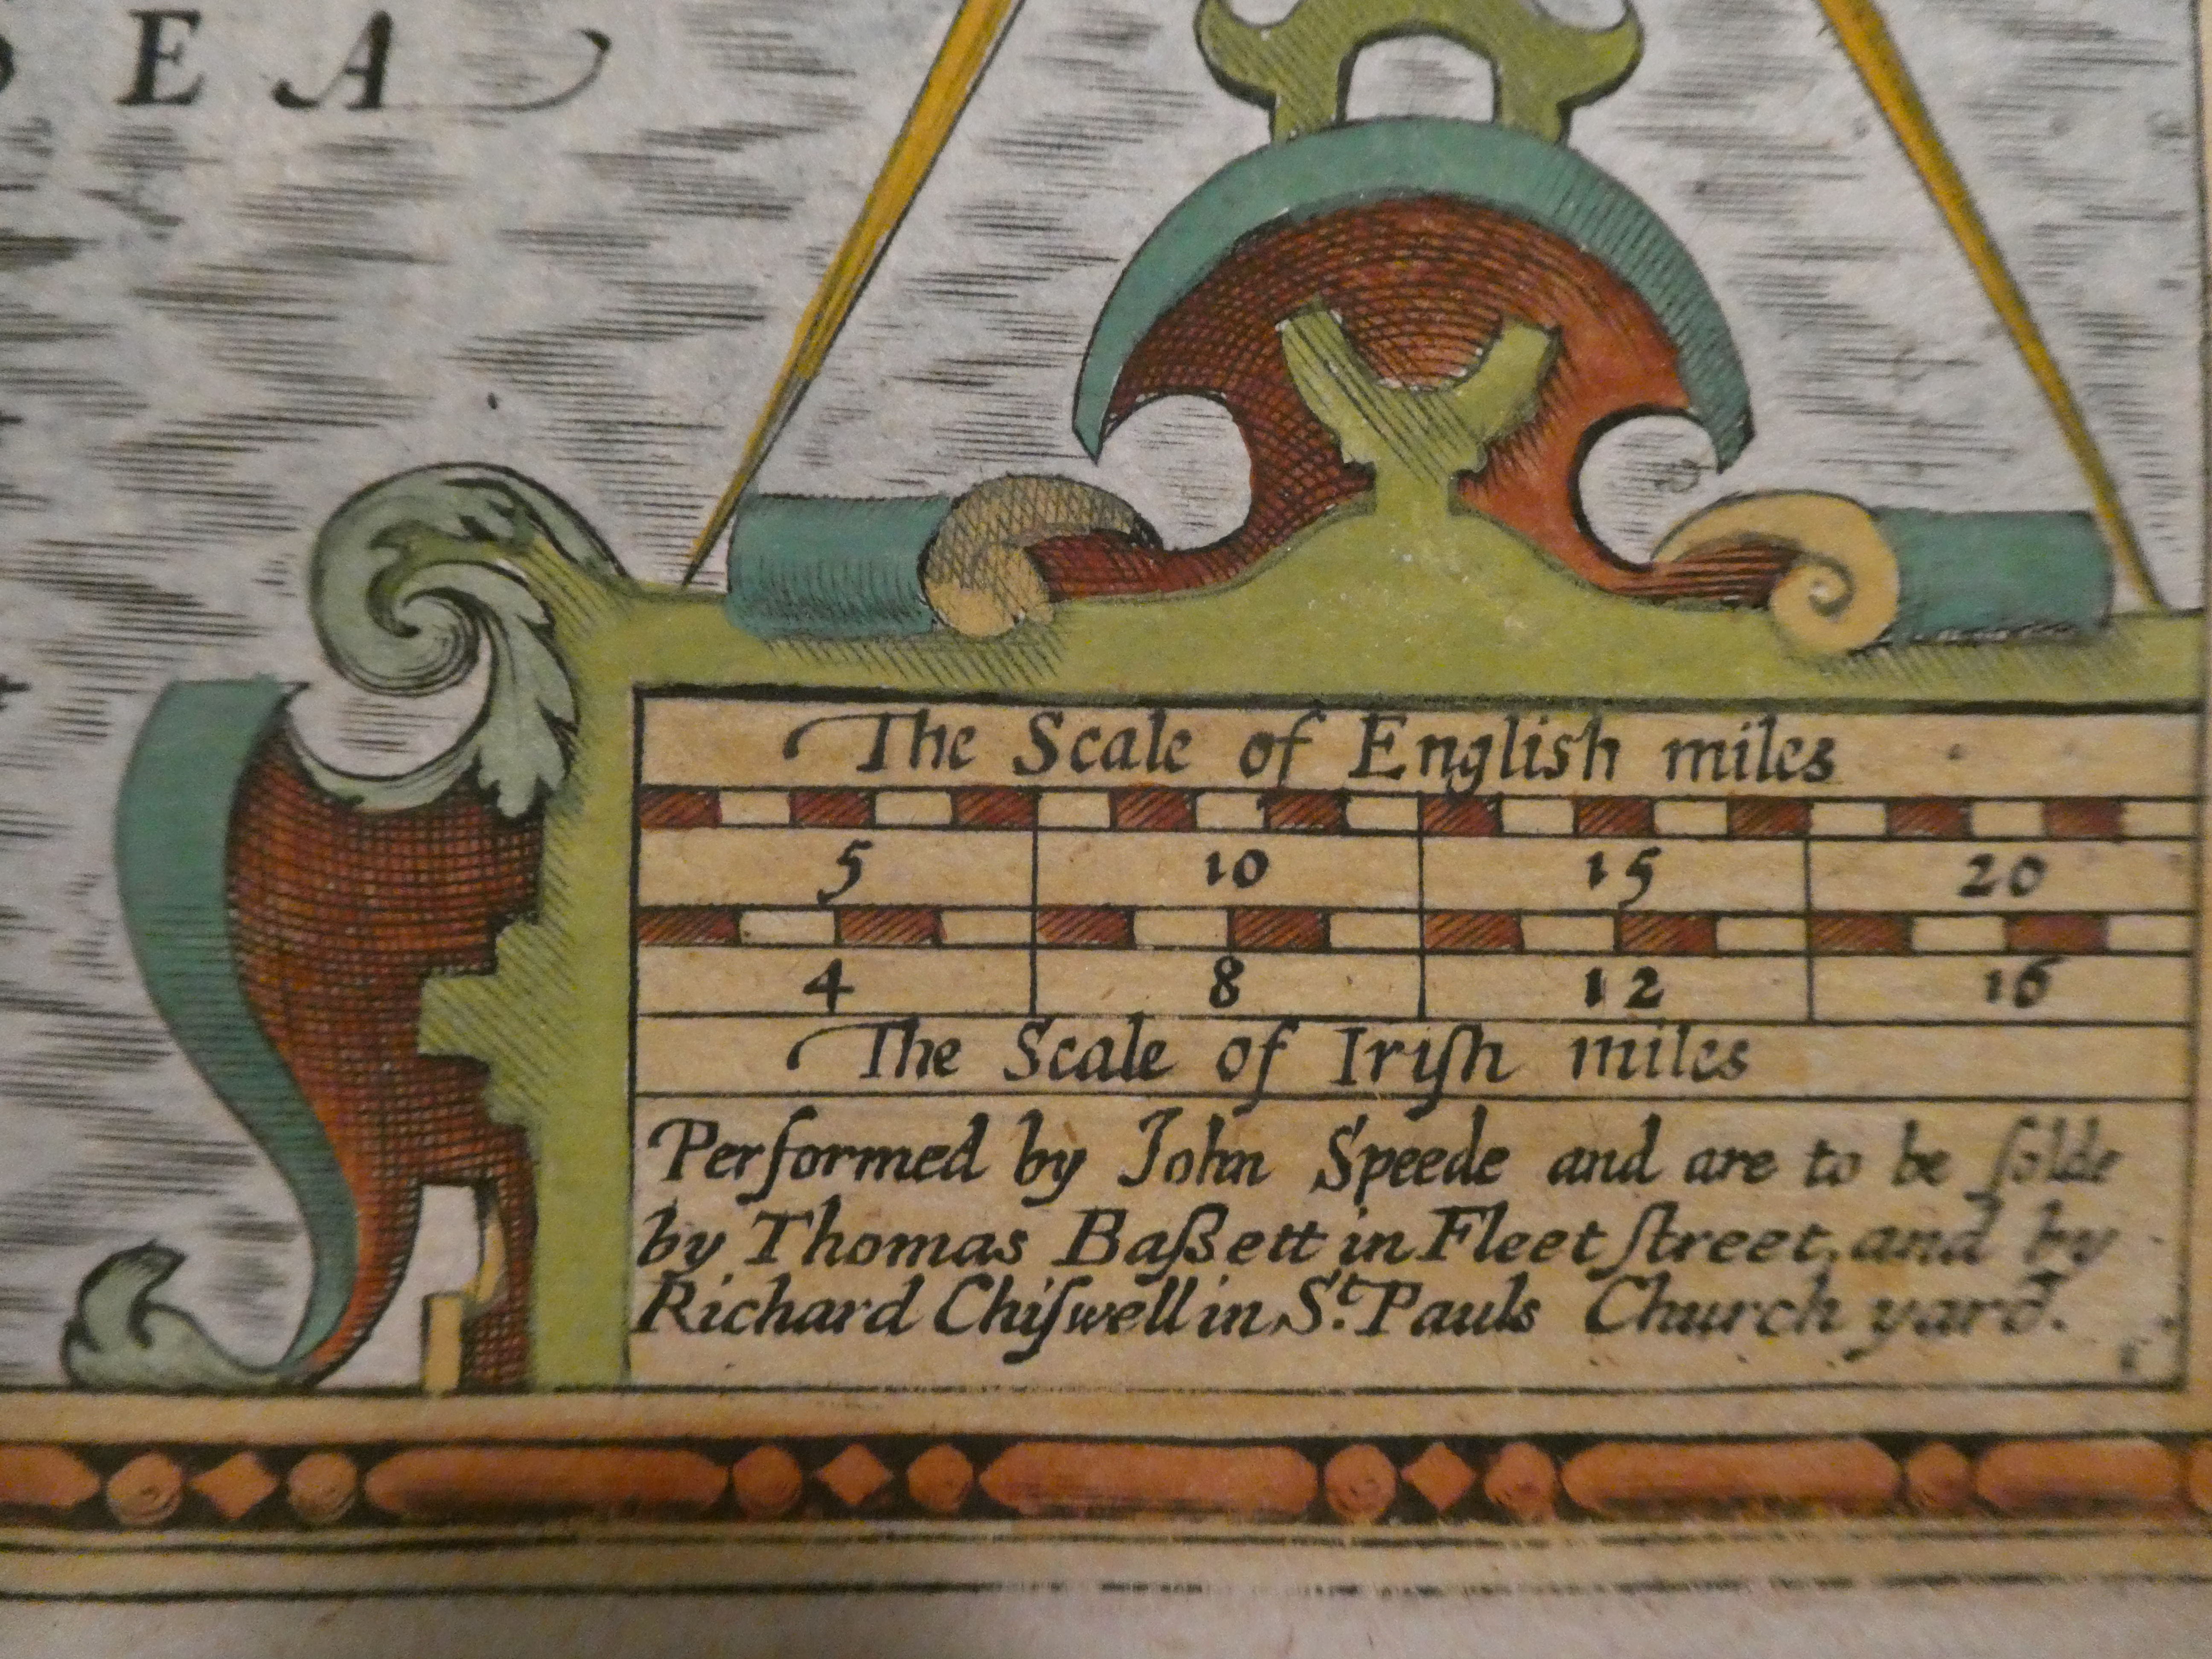 SEA
The Scale of English miles
5 10 15 20
4 8 12 16
The Scale of Iriſh miles
Performed by John Speede and are to be ſolde
by Thomas Baßett in Fleet ſtreet, and by
Richard Chiſwell in S.t Pauls Church yard.